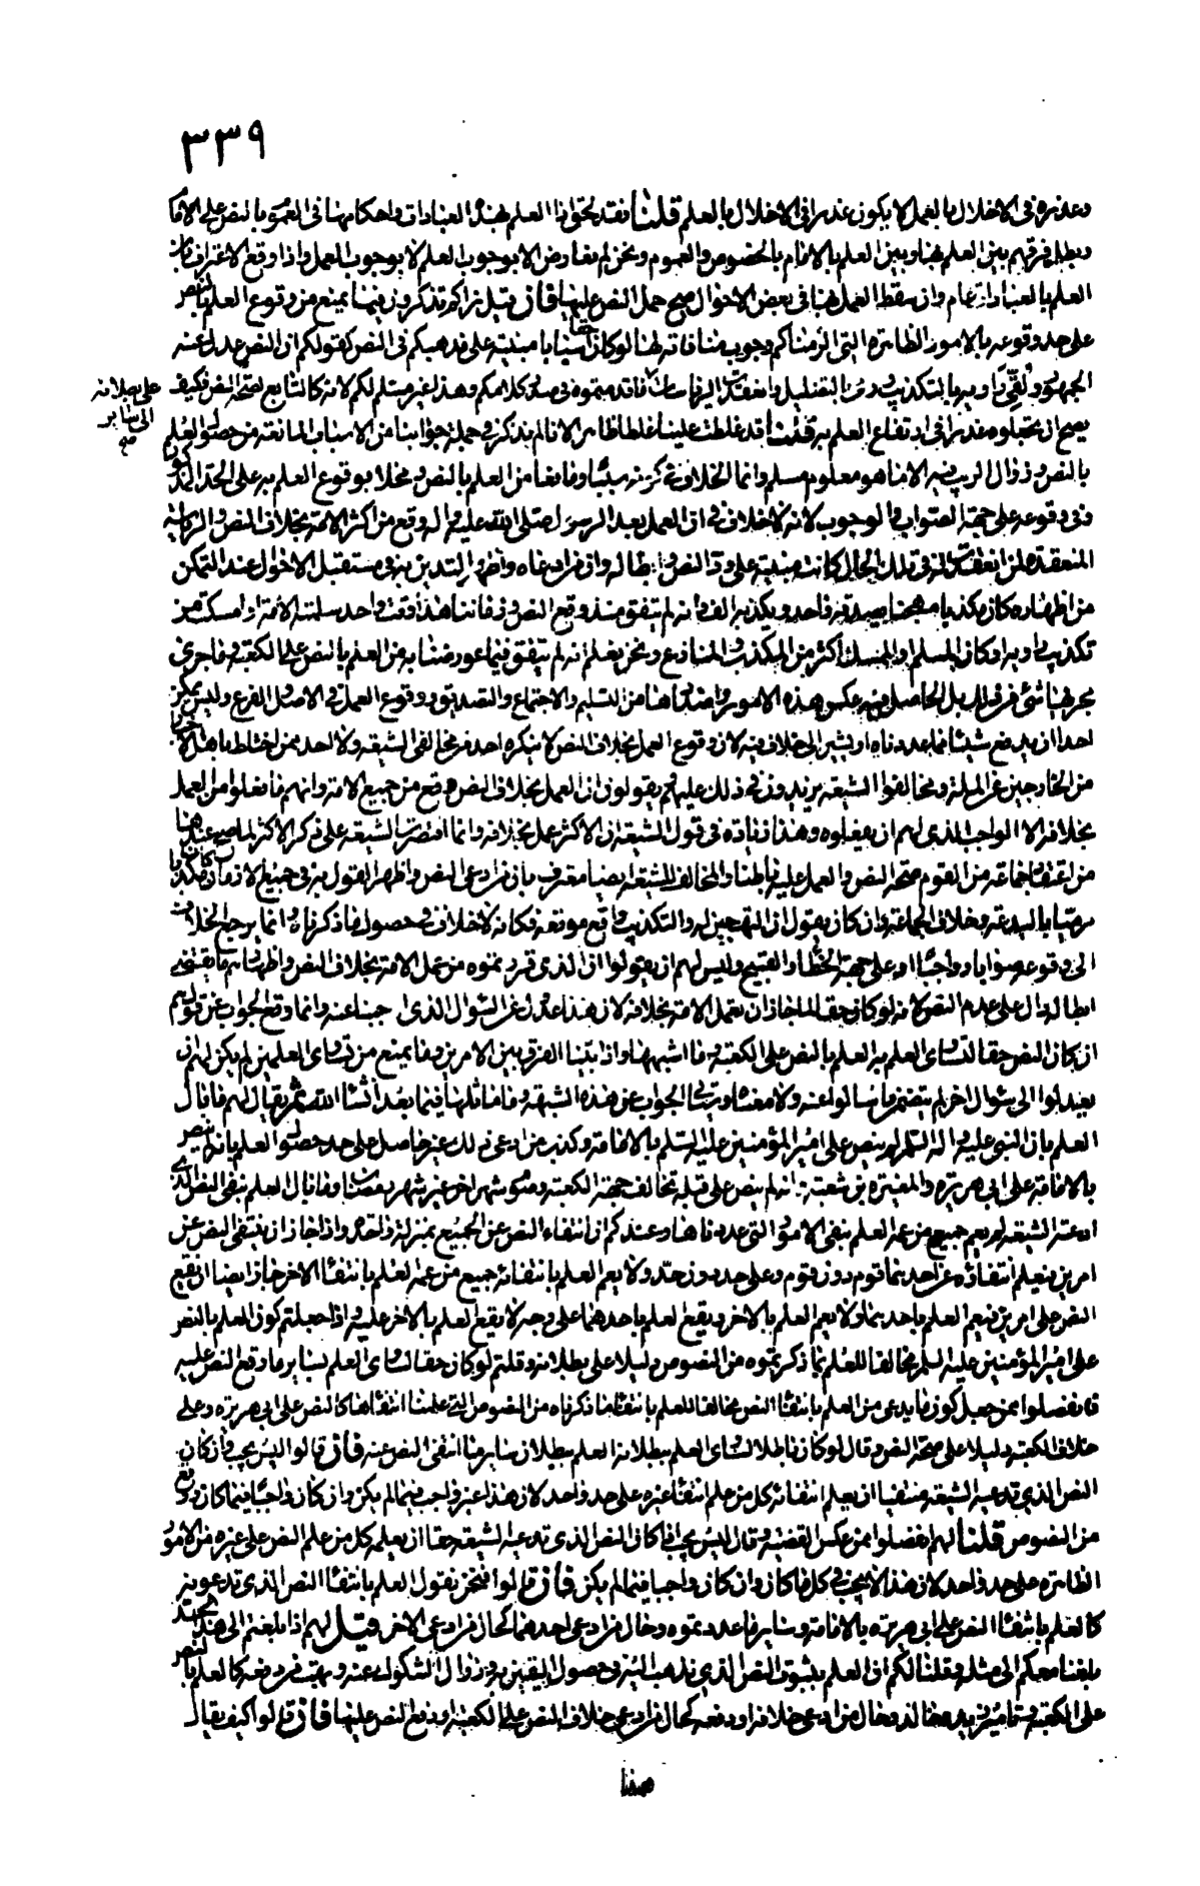 ٣٣٩
وعذره في الاخلال بالعمل لا يكون عذرا في الاخلال بالعلم قلنا فقد لحق اذا العلم بهذه العبادات واحكامها في العموم بالنص على الاما
وبطل فرقهم بين العلم بها وبين العلم بالامام بالخصوص والعموم ونحن لم نعارض الا بوجوب العلم لا بوجوب العمل واذا وقع الاعتراف بان
العلم بالعبادات عام وان سقط العمل بها في بعض الاحوال صح حمل النص عليها فان قيل نراكم تذكرون فيما يمنع من وقوع العلم بالنص
على حد وقوعه بالامور الظاهرة التي الزمناكم وجوب مساواته لها لو كان حقا اسبابا مبنية على مذهبكم في النص كقولكم ان النص عدل عنه
الجمهور ولقي راويه بالتكذيب و بالتضليل وانعقدت الرياسات فاقدمتموه في صدر كلامكم وهذا غير مسلم لكم لانه كالتابع لصحة النص فكيف
على بطلانه الى سائر
يصح ان تجعلوه عذرا في ارتفاع العلم به قلنا قد غلطت علينا غلطا ظاهرا لانا لم نذكر في جملة جوابنا من الاسباب المانعة من حصول العلم
بالنص وزوال الريب فيه الا ما هو معلوم مسلم وانما الخلاف في كونه سببا ومانعا من العلم بالنص ومخلا بوقوع العلم به على الحد المذكور
وفي وقوعه على جهة الصواب والوجوب لانه لا خلاف في ان العمل بعد الرسول صلى الله عليه واله وقع من اكثر الامة بخلاف النص والرياسة
المنعقدة لمن انعقدت له في تلك الحال كانت مبنية على رد النص وابطاله وان من ادعاه واظهر التدين به في مستقبل الاحوال عند التمكن
من اظهاره كان مكذبا مهجنا يصدقه واحد ويكذبه الف وانه لم يتفق منذ وقع النص وزماننا هذا وقت واحد سلمته الامة او امسكت عن
تكذيب راويه او كان المسلم او الممسك اكثر من المكذب والمنازع ونحن نعلم انه لم يتفق فيما عورضنا به من العلم بالنص على الكعبة وما جرى
مجراها شئ من ذلك بل الحاصل فيه عكس هذه الامور واضدادها من التسليم والاجتماع والتصديق ووقوع العمل في الاصل والفرع وليس يمكن
احدا ان يدفع شيئا مما عددناه او يشير الى خلاف فيه لان وقوع العمل بخلاف النص لا ينكره احد من مخالفي الشيعة ولا احد ممن اختلط باهل الاخبار
من الخارجين عن الملة ومخالفوا الشيعة يزيدون في ذلك عليهم ويقولون ان العمل بخلاف النص وقع من جميع الامة وانهم ما فعلوا من العمل
بخلافه الا الواجب الذي لهم ان يفعلوه وهذا زيادة في قول الشيعة ان الاكثر عمل بخلافه وانما اقتصرت الشيعة على ذكر الاكثر لما صح عندها
من اعتقاد جماعة من القوم صحة النص والعمل عليه باطنا والمخالف للشيعة ايضا معترف بان من ادعى النص واظهر القول به في جميع الازمان كان مكذبا
مرميا بالبدعة وخلاف الجماعة وان كان يقول ان التهجين له والتكذيب واقع موقعه فكانه لا خلاف في حصول ما ذكرناه وانما يرجع الخلاف
الى وقوعه صوابا وواجبا او على جهة الخطأ والقبيح وليس لهم ان يقولوا ان الذي قررتموه من عمل الامة بخلاف النص واظهارهم ما يقتضي
ابطاله دال على عدم النص لانه لو كان حقا لما جاز ان تعمل الامة بخلافه لان هذا عدول عن السؤال الذي اجبنا عنه وانما وقع الجواب عن قولهم
ان كان النص حقا لتساوى العلم به العلم بالنص على الكعبة وما اشبهها واذا بينا الفرق بين الامرين وما يمنع من تساوي العلمين لم يكن لهم ان
يعدلوا الى سؤال اخر لم يتضمن ما سألوا عنه ولا معناه وسياتي الجواب عن هذه الشبهة وما ماثلها فيما بعد انشاء الله ثم يقال لهم ما بال
العلم بان النبي عليه واله السلام لم ينص على امير المؤمنين عليه السلام بالامامة وكذب من ادعى ذلك غير حاصل على حد حصول العلم بانه لم ينص
بالامامة على ابي هريرة والمغيرة بن شعبة وانه لم ينص على قبلة تخالف جهة الكعبة وصوم شهر اخر غير شهر رمضان وما بال العلم بنفي النص الذي
ادعته الشيعة لم يعم جميع من عمه العلم بنفي الامور التي عددناها وعندكم ان انتفاء النص عن الجميع بمنزلة واحدة واذا جاز ان ينتفي النص عن
امرين فيعلم انتفاؤه عن احدهما قوم دون قوم وعلى حد دون حد ولا يعم العلم بانتفائه جميع من عمه العلم بانتفاء الاخر جاز ايضا ان يقع
النص على امرين فيعم العلم باحدهما ولا يعم العلم بالاخر ويقع العلم باحدهما على وجه لا يقع العلم بالاخر عليه واذا جعلتم كون العلم بالنص
على امير المؤمنين عليه السلام مخالفا للعلم بما ذكرتموه من النصوص دليلا على بطلانه وقلتم لو كان حقا لتساوى العلم لسائر ما وقع النص عليه
فافصلوا ممن جعل كون ما يدعى من العلم بانتفاء النص مخالفا للعلم بانتفاء ما ذكرناه من النصوص التي علمنا انتفاءها كالنص على ابي هريرة وعلى
خلاف الكعبة دليلا على صحة النص وقال لو كان باطلا لتساوى العلم ببطلانه العلم ببطلان سائر ما انتفى النص عنه فان قالوا ليس يجب ان كان
النص الذي تدعيه الشيعة منتفيا ان يعلم انتفائه كل من علم انتفاء غيره على حد واحد لان هذا غير واجب فيما لم يكن وان كان واجبا فيما كان ووقع
من النصوص قلنا لهم افصلوا ممن عكس القضية وقال ليس يجب اذا كان النص الذي تدعيه الشيعة حقا ان يعلمه كل من علم النص على غيره من الامور
الظاهرة على حد واحد لان هذا لا يجب في كل ما كان وان كان واجبا فيما لم يكن فان قالوا فنحن نقول العلم بانتفاء النص الذي تدعونه
كالعلم بانتفاء النص على ابي هريرة بالامامة وسائر ما عددتموه وحال من ادعى احدهما كحال من ادعى الاخر قيل لهم اذا بلغتم الى هذا الحد
بلغنا معكم الى مثله وقلنا لكم ان العلم بثبوت النص الذي نذهب اليه في حصول اليقين به وزوال الشكوك عنه وبهت من دفعه كالعلم بالنص
على الكعبة وحال من ادعى خلافه او دفعه كحال من ادعى خلاف النص على الكعبة او دفع النص عليها فان قالوا كيف يقال
هذا